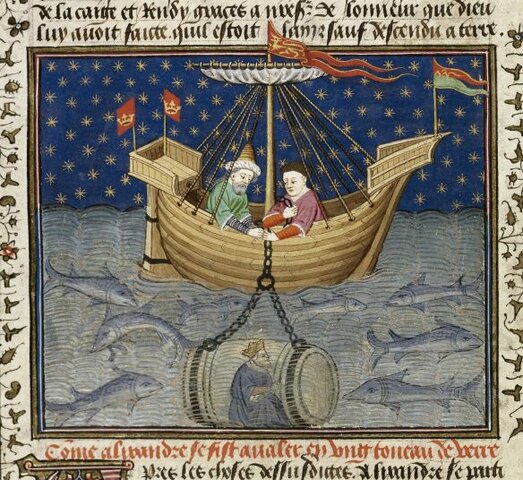 de la caige et Rendy graces a De lonneur que dieu
luy avoit faicte. quil estoit sayn sauf descendu a terre.
Cōme alixandre se fist avaler en vng toneau de verre
Pres les choses dessusdictes. Alixandre se parti